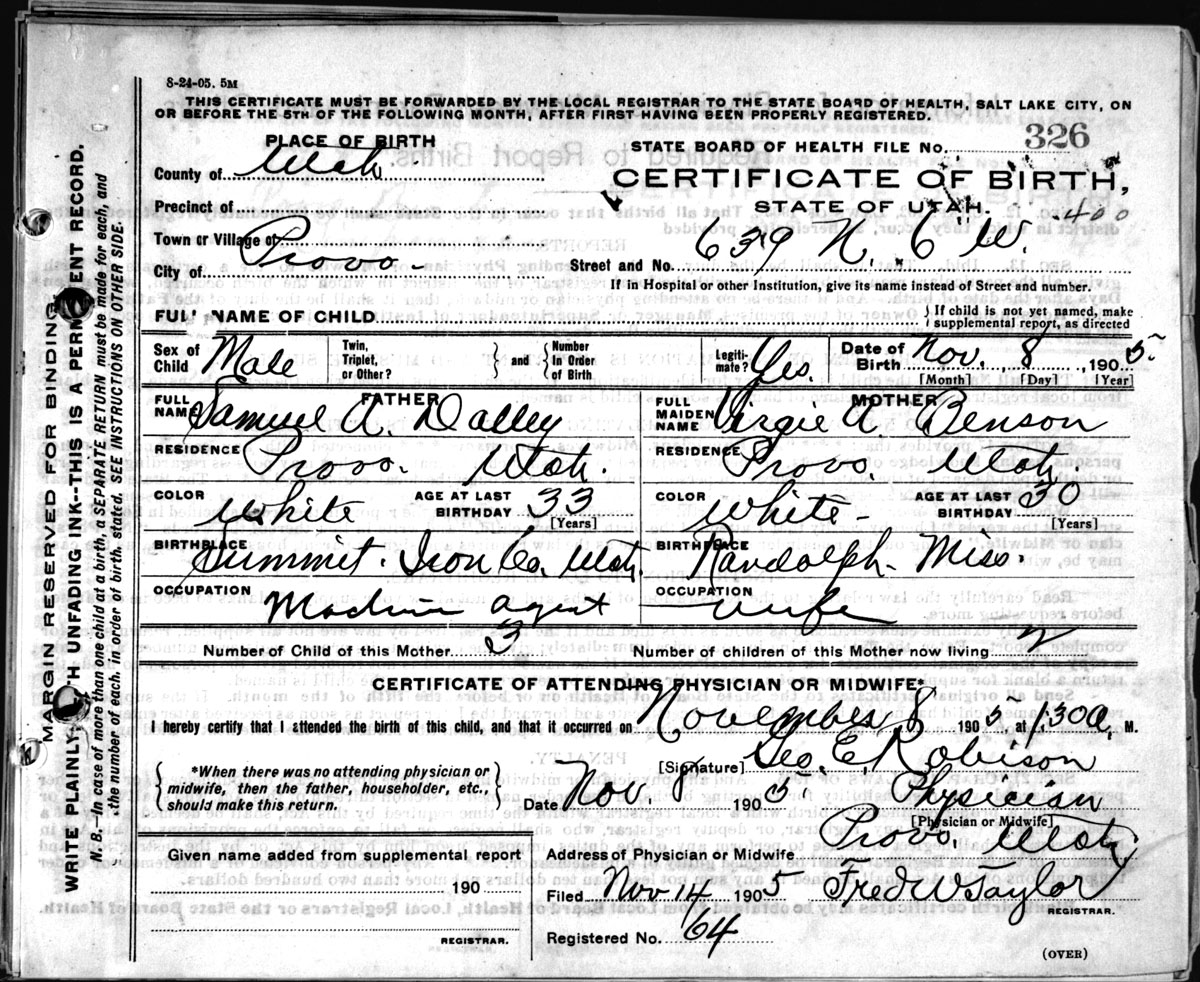 8-24-05. 5M
THIS CERTIFICATE MUST BE FORWARDED BY THE LOCAL REGISTRAR TO THE STATE BOARD OF HEALTH, SALT LAKE CITY, ON
OR BEFORE THE 5TH OF THE FOLLOWING MONTH, AFTER FIRST HAVING BEEN PROPERLY REGISTERED.
PLACE OF BIRTH
STATE BOARD OF HEALTH FILE No. 326
County of Utah.
CERTIFICATE OF BIRTH,
Precinct of
STATE OF UTAH.
400
Town or Village of
City of Provo
Street and No. 639 N. 6 W.
If in Hospital or other Institution, give its name instead of Street and number.
FULL NAME OF CHILD
If child is not yet named, make
supplemental report, as directed
Sex of Child Male
Twin, Triplet, or Other?
and
Number In Order of Birth
Legitimate? Yes.
Date of Birth Nov. 8, 1905
[Month] [Day] [Year]
FATHER
FULL NAME Samuel A. Dalley
MOTHER
FULL MAIDEN NAME Virgie A. Benson
RESIDENCE Provo. Utah.
RESIDENCE Provo. Utah.
COLOR White
AGE AT LAST BIRTHDAY 33
[Years]
COLOR White
AGE AT LAST BIRTHDAY 30
[Years]
BIRTHPLACE Summit. Iron Co. Utah.
BIRTHPLACE Randolph Miss.
OCCUPATION Machine agent
OCCUPATION wife
Number of Child of this Mother 3
Number of children of this Mother now living 2
CERTIFICATE OF ATTENDING PHYSICIAN OR MIDWIFE*
I hereby certify that I attended the birth of this child, and that it occurred on November 8 1905, at 1:30 A, M.
[Signature] Geo. E. Robison
*When there was no attending physician or
midwife, then the father, householder, etc.,
should make this return.
Date Nov. 8 1905.
Physician
[Physician or Midwife]
Given name added from supplemental report
190
REGISTRAR.
Address of Physician or Midwife Provo Utah
Filed Nov 14 1905
Fred W Taylor
REGISTRAR.
Registered No. 64
(OVER)
MARGIN RESERVED FOR BINDING
WRITE PLAINLY WITH UNFADING INK--THIS IS A PERMANENT RECORD.
N. B.--In case of more than one child at a birth, a SEPARATE RETURN must be made for each, and
the number of each, in order of birth, stated. SEE INSTRUCTIONS ON OTHER SIDE.